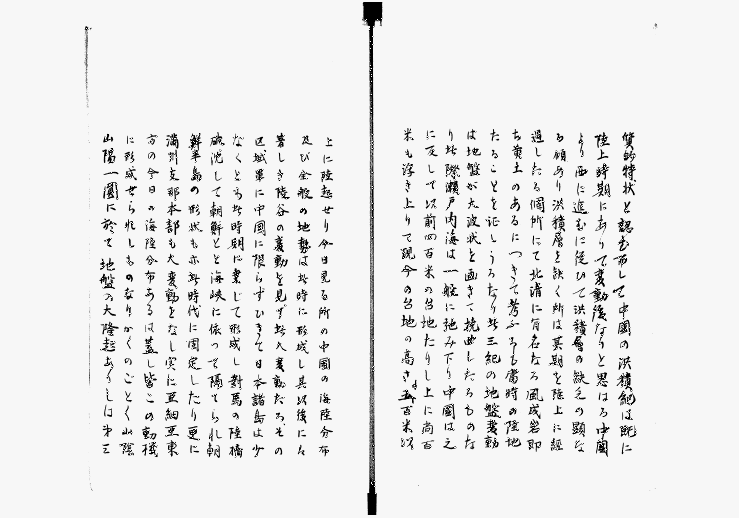 質的特状と認む而して中國の洪積統は既に
陸上時期にありて変動後なりと思はる中國
より西に進むに従ひて洪積層の缺乏の顕な
る傾あり洪積層を缺く所は其期を陸上に経
過したる個所にて北清に有名なる風成岩即
ち黄土のあるにつきて考ふるも當時の陸地
たることを証しうるなり此三紀の地盤変動
は地盤が大波状を画きて撓曲したるものな
り此際瀬戸内海は一般に弛み下り中國は之
に反して以前四百米の台地たりし上に尚百
米も浮き上りて現今の台地の高さ五百米以
上に陸起せり今日見る所の中國の海陸分布
及び全般の地勢は此時に形成し其以後には
著しき陸谷の変動を見ず此大変動たるその
区域単に中國に限らずひきて日本諸島は少
なくとも此時期に乗じて形成し對馬の陸橋
破混して朝鮮とと海峡に依つて隔てられ朝
鮮半島の形状も亦此時代に固定したり更に
満州支那本部も大変動をなし実に亜細亜東
方の今日の海陸分布あるは蓋し皆この動機
に形成せられしものなりかくのごとく山陰
山陽一圓に於て地盤の大隆起ありしは第三